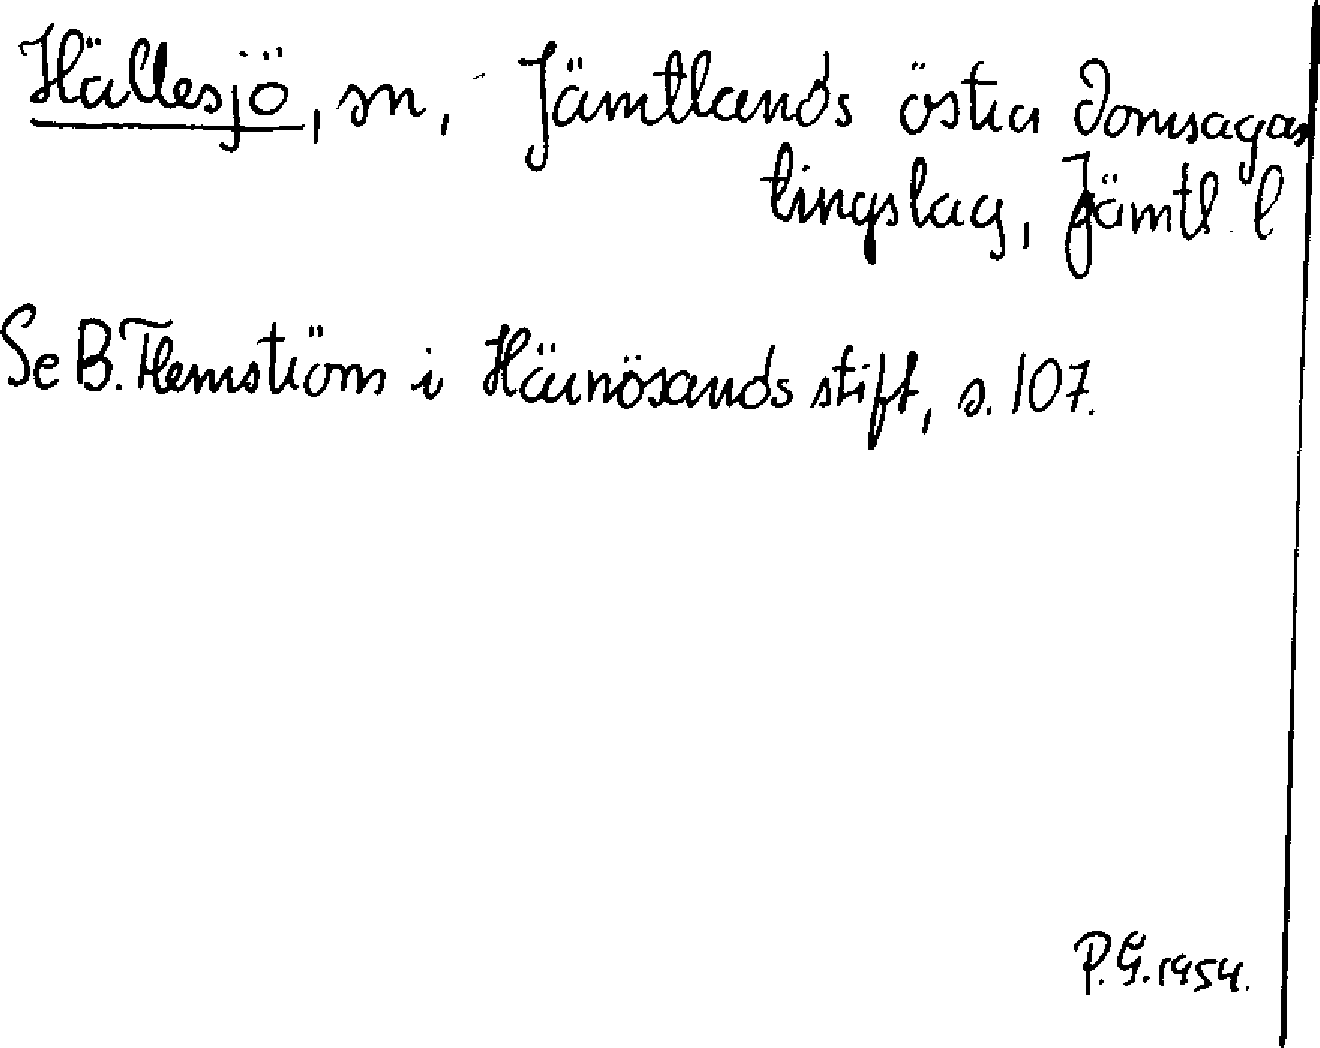 Hällesjö, sn, Jämtlands östra domsagas
tingslag, Jämtl. l
Se B. Flemström i Härnösands stift, s. 107.
P.G. 1954.